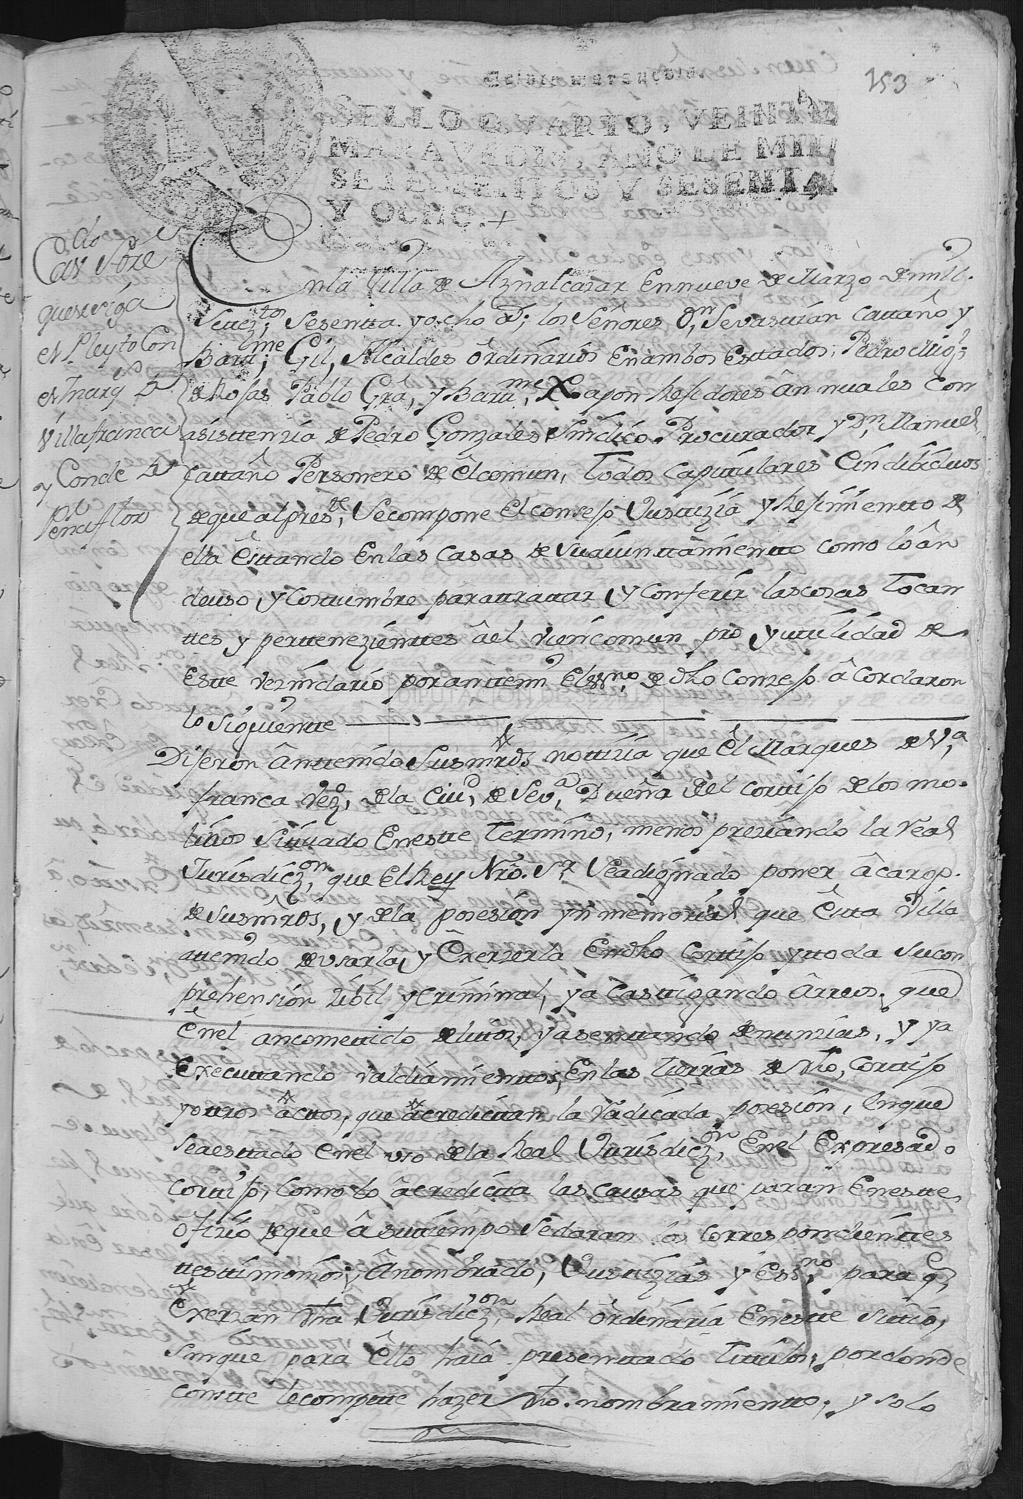 253
Veinte maravedis.
SELLO QVARTO, VEINTE
MARAVEDIS, AÑO DE MIL
SETECIENTOS Y SESENTA
Y OCHO.
Cav.do Sore
que se siga
el Pleyto Con
el Marq.s de
Villafranca
y Conde de
Peñaflor
En la Villa de Aznalcazar En nueve de Marzo de mill
Settez.tos Sesentta y ocho as; los Señores Dn Sevasttian Cattaño y
Bart.me Gil, Alcaldes ôrdinarios Enambos Esttados; Pedro
de Rosas Pablo Grâ, y Bart.me Rapon Rejidores ânnuales con
asisttenzia de Pedro Gonzales Sindico Procurador y Dn Manuel
Cattaño Personero de êl comun, Todos Capittulares Eindibiduos
de que alpres.te Secompone El consejo Justizia y Rejimientto de
ella Esttando Enlas Casas de Su aiunttamientto como lo ân
deuso, y Costtumbre paratrattar y Conferir las cosas Tocan
ttes y perttenezienttes âel vien comun pro y utilidad de
Estte vezindario porantemi El ess.no de dho Consejo âcordaron
lo siguientte
Dijeron ânttenido Susmrds. nottizia que Êl Marques de V.a
franca Vez.o de la Ciud. de Sev.a Dueño del Corttijo de los mo-
linos Sittuado En estte Termino, menos preziando la Real
Jurisdiz.on que El Rey Nro. Sr. Se adignado poner âcargo
de Susmrds, y de la posesion ynmemorial que Estta Villa
attenido de usarla, y Exerzerla En dho Corttijo y ttoda Sucom
prehension Zibil y Criminal, ya Casttigando â rreos, que
En el an comettido delittos, y asenttando denunzias, y ya
Executtando valdiamienttos, En las Tierras de dho, Corttijo
y ottros âcttos, que âcredittan la Radicada posesion, Enque
Seaesttado En el uso de la Real Jurisdiz.on En el Expresado
Corttijo, Como lo âcreditta las Causas que paran En estte
ofizio de que â su tiempo Sedaran los Correspondienttes
ttesttimonios, Ânombrado, Justizias y Ess.no para q.e
Exerzan dha Jurisdiz.on Real ôrdinaria En estte Sittio,
Sinque para Ello haia presenttado Titulo, por donde
constte lecompette hazer dho. nombramientto, y solo